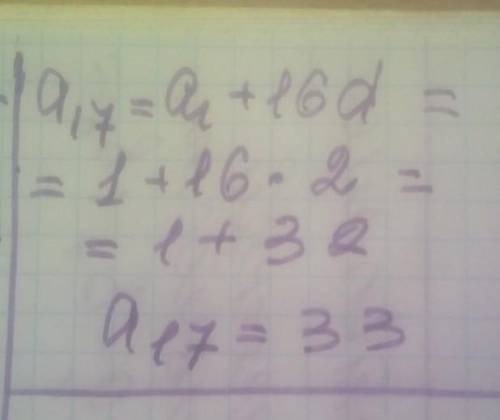 a₁₇ = a₁ + 16d =
= 1 + 16 · 2 =
= 1 + 32
a₁₇ = 33